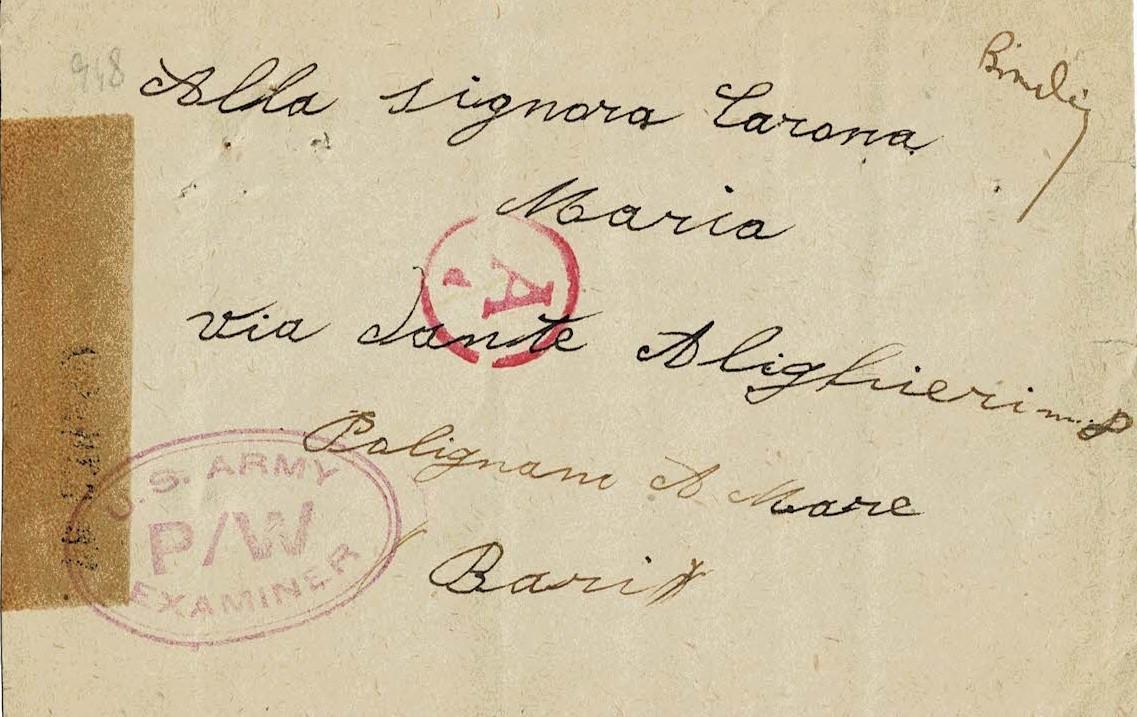 948
Alla signora Carona
Maria
A
via Dante Alighieri n. 8
Polignano A Mare
Bari
U.S. ARMY
P/W
EXAMINER